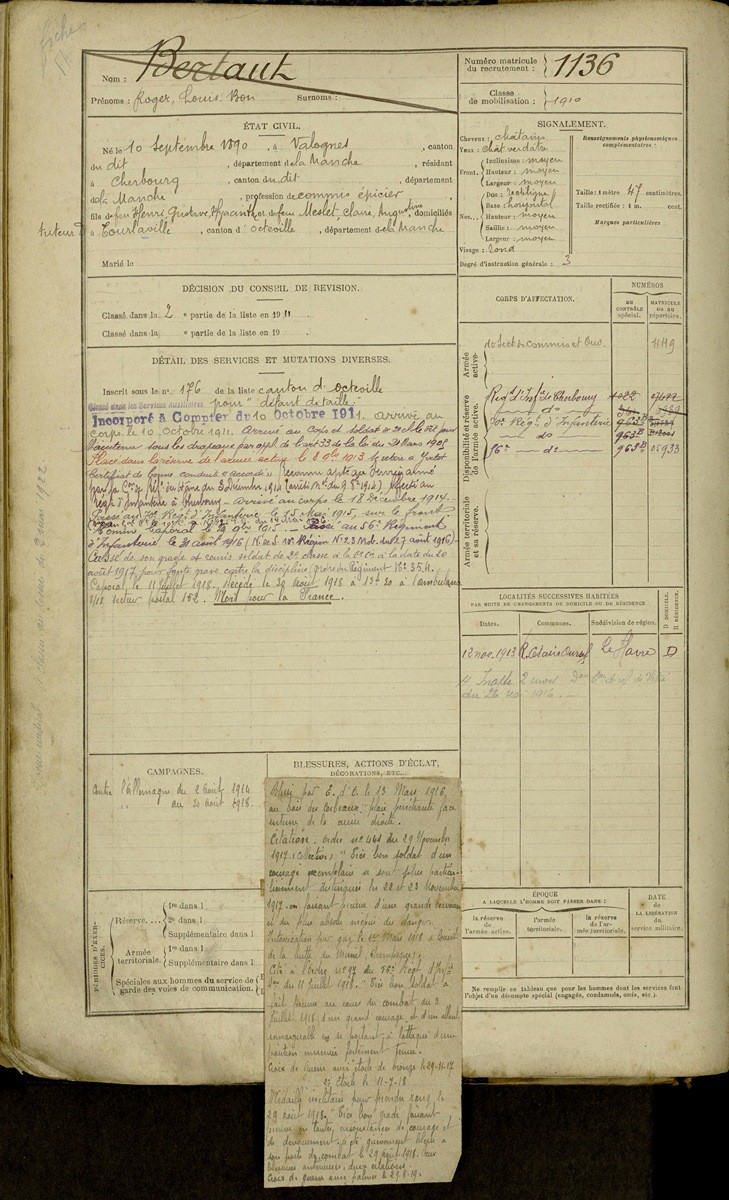 fiche
Nom : Bertaut
Prénoms : Roger, Louis Bon Surnoms :
Numéro matricule du recrutement : 1136
Classe de mobilisation : 1910
ÉTAT CIVIL.
Né le 10 Septembre 1890, à Valognes, canton
du dit, département de la Manche, résidant
à Cherbourg, canton du dit, département
de la Manche, profession de commis épicier
fils de feu Henri, Gustave, Hyacinthe et de feu Meslet, Claire, Augustine, domiciliés
tuteur à Tourlaville, canton d'Octeville, département de la Manche
Marié le
SIGNALEMENT.
Cheveux : châtains
Yeux : chât verdâtre
Front. Inclinaison : moyen
Hauteur : moyen
Largeur : moyen
Nez. Dos : rectiligne
Base : horizontal
Hauteur : moyen
Saillie : moyen
Largeur : moyen
Visage : rond
Renseignements physionomiques complémentaires :
Taille : 1 mètre 47 centimètres.
Taille rectifiée : 1 m. cent.
Marques particulières
Degré d'instruction générale : 3
DÉCISION DU CONSEIL DE REVISION.
Classé dans la 2e partie de la liste en 1911.
Classé dans la e partie de la liste en 19 .
DÉTAIL DES SERVICES ET MUTATIONS DIVERSES.
Inscrit sous le n° 176 de la liste canton d'Octeville
Classé dans les Services Auxiliaires pour "défaut de taille"
Incorporé à Compter du 10 Octobre 1911. arrivé au
corps le 10 octobre 1911.
sous les drapeaux par appl. de l'art 33 de la loi du 21 Mars 1905
Placé dans la réserve de l'armée active le 8 9bre 1913
Certificat de bonne conduite "accordé"
Arrivé au corps le 18 Décembre 1914.
Passé au 70e Régt d'Infanterie le 15 Mars 1915, sur le front
Passé au 56e Régiment
d'Infanterie le 31 août 1916
Cassé de son grade et remis soldat de 2e classe à la date du 20
août 1917 pour faute grave contre la discipline (ordre du Régiment N° 354.
Caporal le 11 juillet 1918. Décédé le 30 Août 1918 à 13h 20 à l'ambulance
3/18 secteur postal 152. Mort pour la France.
CORPS D'AFFECTATION.
NUMÉROS
AU CONTRÔLE spécial.
MATRICULE OU AU RÉPERTOIRE.
Armée active.
Sect. de Commis et Ouv. 4149
Disponibilité et réserve de l'armée active.
Régt d'Infie de Cherbourg
do
70e Régt d'Infanterie
do
56e do
Armée territoriale et sa réserve.
LOCALITÉS SUCCESSIVES HABITÉES
PAR SUITE DE CHANGEMENTS DE DOMICILE OU DE RÉSIDENCE
Dates. Communes. Subdivision de région. D DOMICILE. R RÉSIDENCE.
12 nov. 1913 Le Havre D
du 26 mai 1916.
CAMPAGNES.
contre l'Allemagne du 2 août 1914
au 30 août 1918.
BLESSURES, ACTIONS D'ÉCLAT,
DÉCORATIONS, ETC.
Blessé par E. d'O. le 13 Mars 1916,
au bois des Corbeaux, plaie pénétrante face
interne de la cuisse droite.
Citation : ordre n° 461 du 29 Novembre
1917 (collective) "Très bon soldat d'un
courage exemplaire s'est plus particu-
lièrement distingué le 22 et 23 Novembre
1917 en faisant preuve d'une grande bravoure
et du plus absolu mépris du danger.
Intoxication par gaz le 1er Mars 1918 à l'ouest
de la butte du Mesnil (Champagne).
Cité à l'ordre n° 97 du 56e Régt d'Infie
du 11 Juillet 1918. "Très bon soldat a
fait preuve au cours du combat du 2
Juillet 1918 d'un grand courage et d'un allant
remarquable en se portant à l'attaque d'une
position ennemie fortement tenue.
Croix de Guerre avec étoile de bronze le 29-11-17
2e étoile le 11-7-18
Médaille militaire pour prendre rang le
29 août 1918. "Très bon gradé faisant
preuve en toutes circonstances de courage et
de dévouement. a été grièvement blessé à
son poste de combat le 29 août 1918. Une
blessure antérieure, deux citations.
Croix de guerre avec palme
PÉRIODES D'EXERCICES.
Réserve.... 1re dans l
2e dans l
Supplémentaire dans l
Armée territoriale. 1re dans l
Supplémentaire dans l
Spéciales aux hommes du service de garde des voies de communication.
ÉPOQUE
A LAQUELLE L'HOMME DOIT PASSER DANS :
la réserve de l'armée active.
l'armée territoriale.
la réserve de l'armée territoriale.
DATE
DE LA LIBÉRATION DU service militaire.
Ne remplir ce tableau que pour les hommes dont les services font l'objet d'un décompte spécial (engagés, condamnés, omis, etc.)